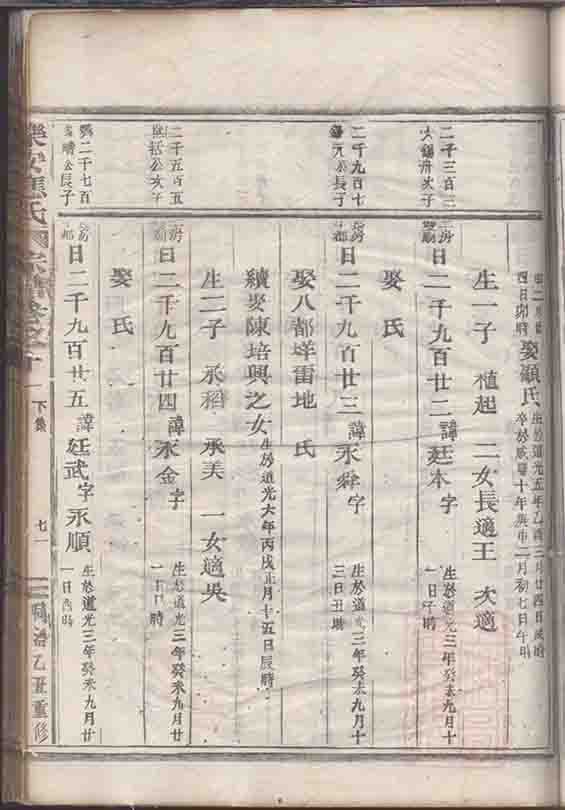 四日卯時 娶顧氏 生於道光五年乙酉三月廿四日戌時
卒於咸豐十年庚申二月初七日午時
生一子 植起 二女長適王 次適
二千三百
次子
日二千九百廿二諱廷本字 生於道光三年癸未九月十
一日子時
娶 氏
二千九百七
公長子
日二千九百廿三諱永舜字 生於道光三年癸未九月十
三日丑時
娶八都垟雷地 氏
續娶陳培興之女 生於道光六年丙戌正月十五日辰時
生二子 承稻 承美 一女適吳
二千五百五
公次子
日二千九百廿四諱永金字 生於道光三年癸未九月廿
時
娶 氏
二千七百
公長子
日二千九百廿五諱廷武字永順 生於道光三年癸未九月廿
一日酉時
樂安 氏 宗譜
下集
七一
同治乙丑重修